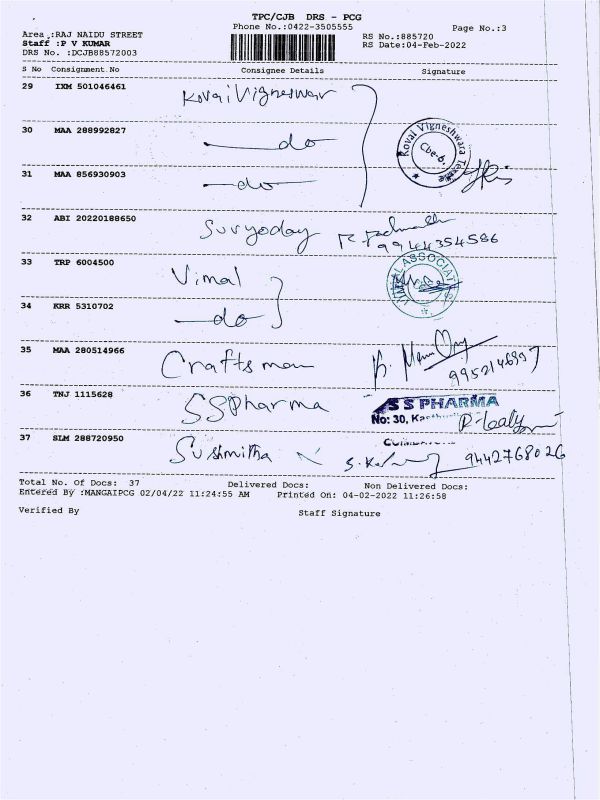 TPC/CJB DRS - PCG
Phone No.:0422-3505555
Page No.:3
Area :RAJ NAIDU STREET
RS No.:885720
Staff :P V KUMAR
RS Date:04-Feb-2022
DRS No. :DCJB88572003
S No Consignment No Consignee Details Signature
29 IXM 501046461 Kovai Vigneswar
30 MAA 288992827 do
Kovai Vigneshwara
Cbe-6.
31 MAA 856930903 do
32 ABI 20220188650 Suryoday
9944354586
33 TRP 6004500 Vimal
VIMAL ASSOCIATES
34 KRR 5310702 do
35 MAA 280514966 Craftsman
36 TNJ 1115628 SSPharma
S S PHARMA
No: 30,
37 SLM 288720950 Sushmitha
9442768026
Total No. Of Docs: 37 Delivered Docs: Non Delivered Docs:
Entered By :MANGAIPCG 02/04/22 11:24:55 AM Printed On: 04-02-2022 11:26:58
Verified By Staff Signature